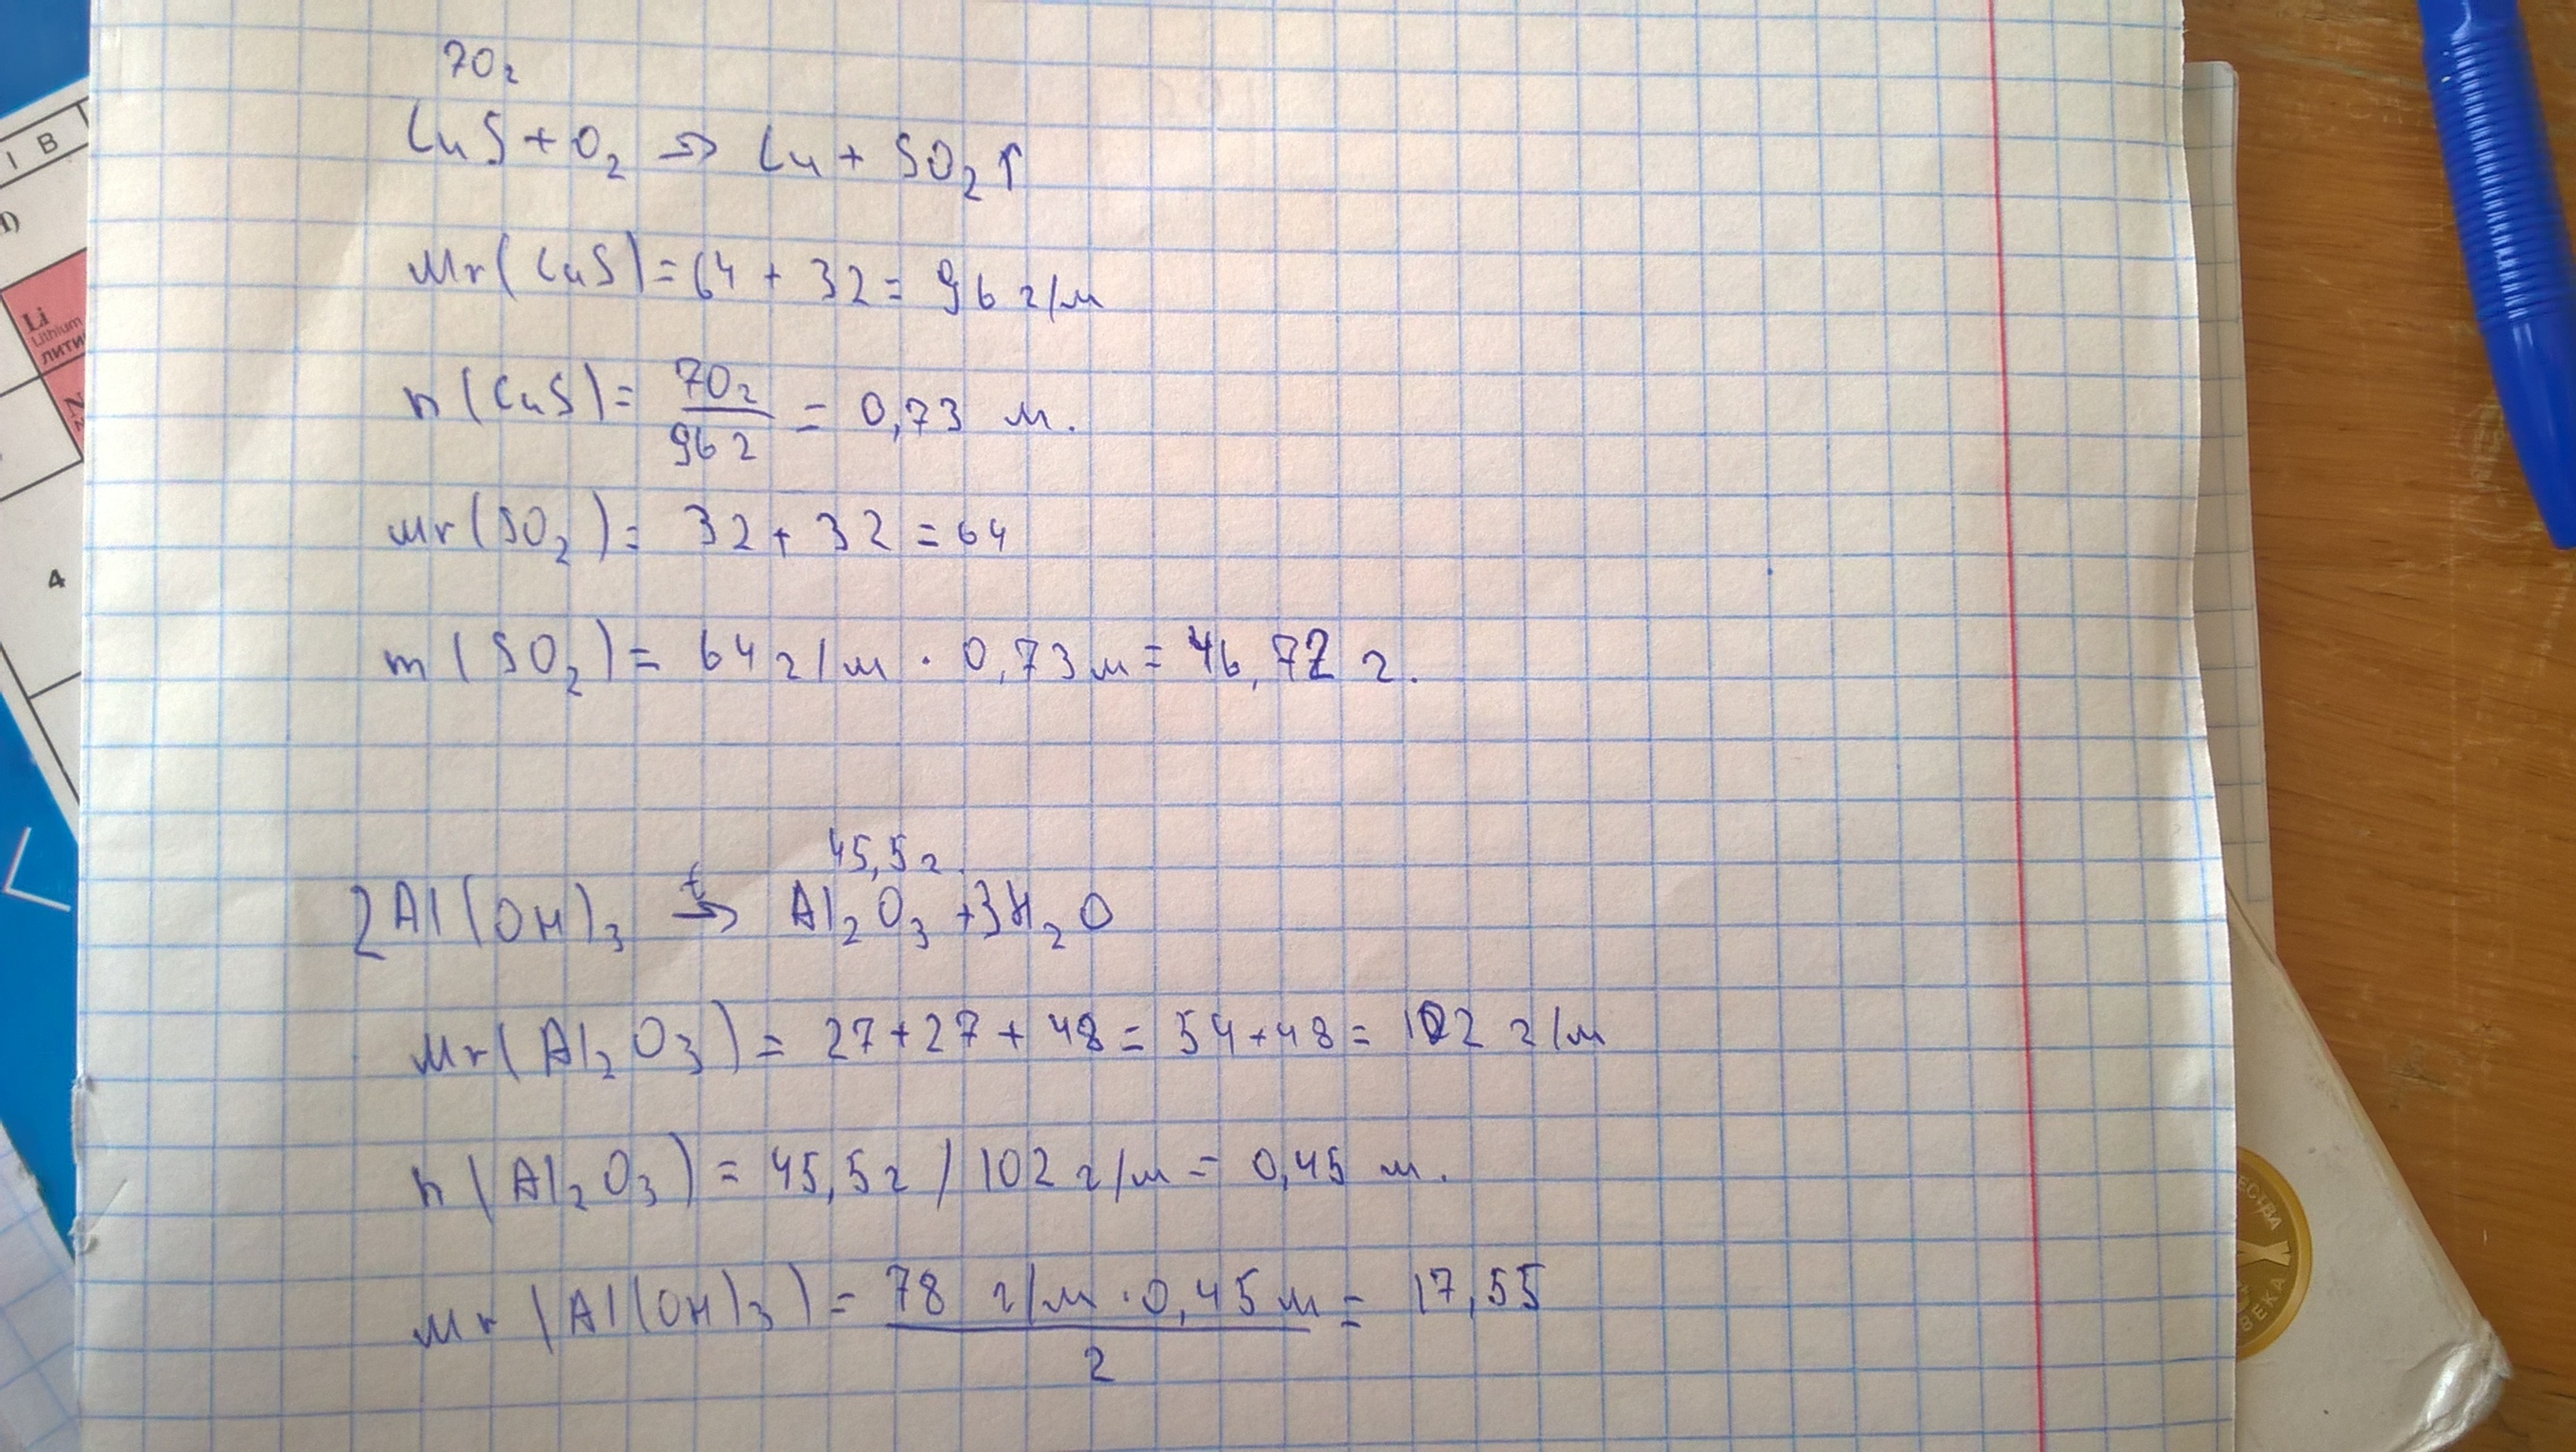 70г
CuS + O₂ → Cu + SO₂↑
Mr(CuS) = 64 + 32 = 96 г/м
n(CuS) = 70г / 96 г = 0,73 м.
Mr(SO₂) = 32 + 32 = 64
m(SO₂) = 64 г/м · 0,73 м = 46,72 г.
45,5 г
2Al(OH)₃ →ᵗ Al₂O₃ + 3H₂O
Mr(Al₂O₃) = 27 + 27 + 48 = 54 + 48 = 102 г/м
n(Al₂O₃) = 45,5 г / 102 г/м = 0,45 м.
Mr(Al(OH)₃) = 78 г/м · 0,45 м / 2 = 17,55
I B
Li
Lithium
4
ВЕКА